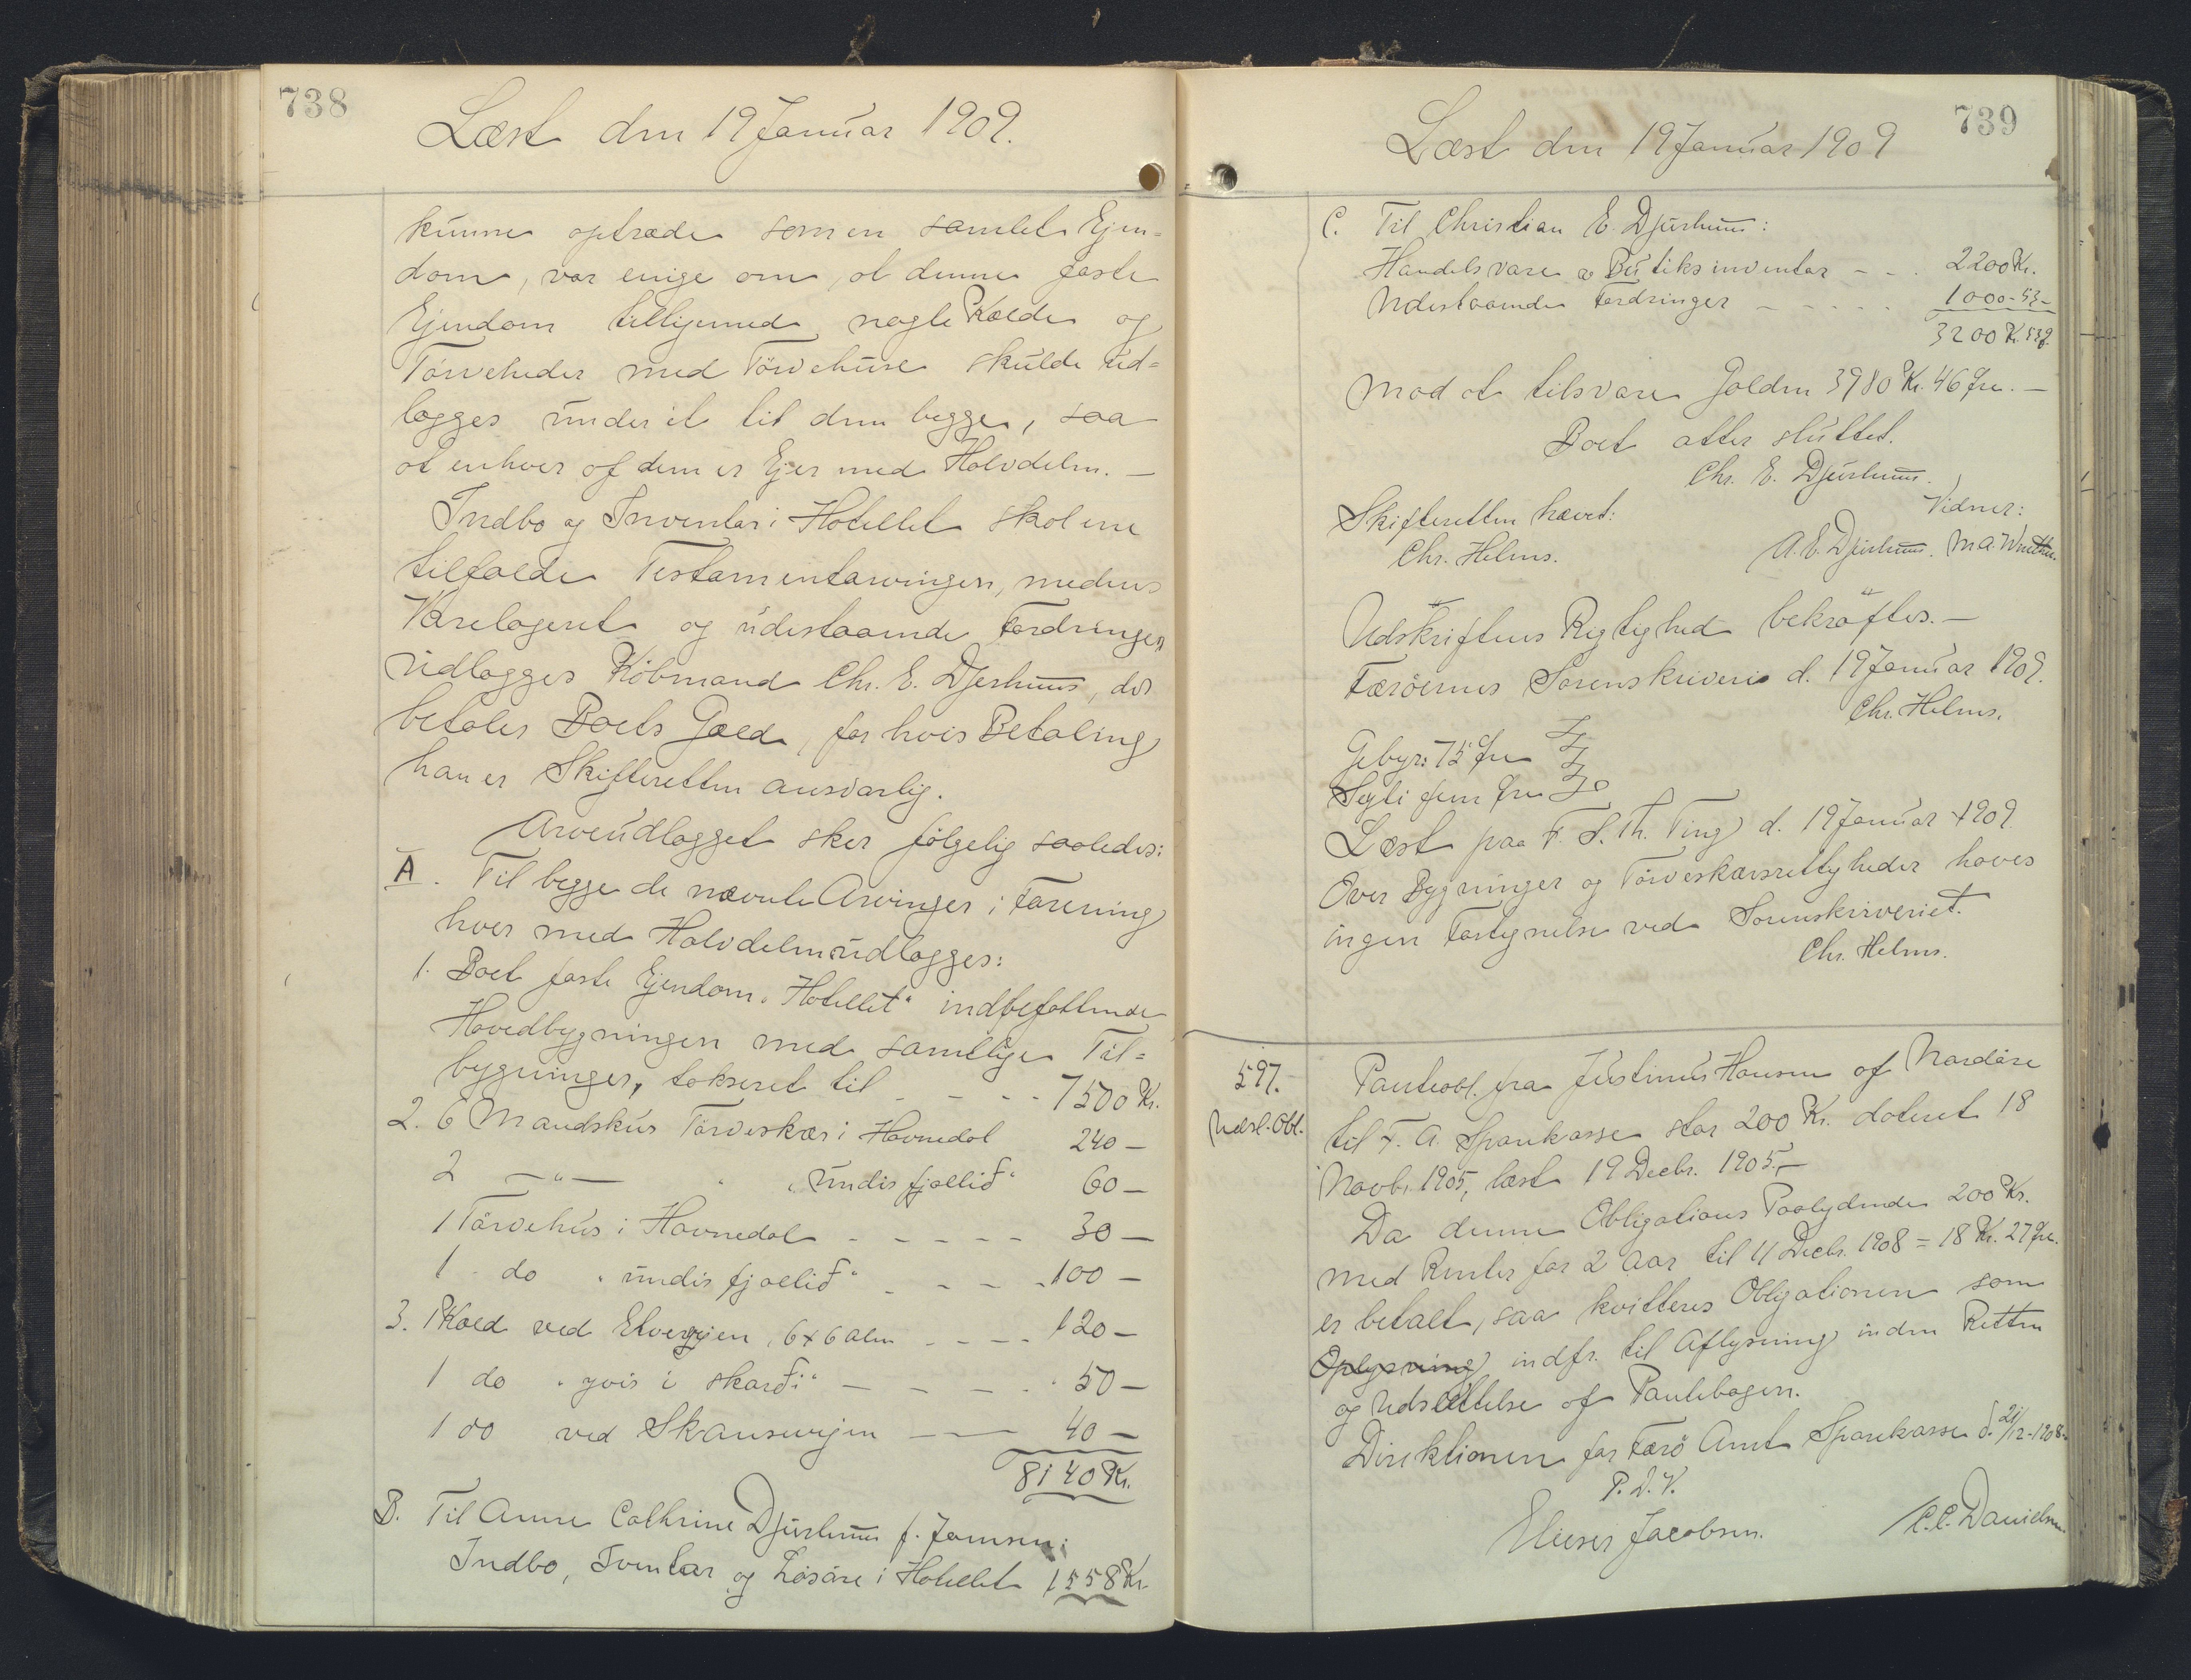 738
Læst den 19 Januar 1909.
kunne optræde som en samlet Ejen=
dom, var enige om, at denne faste
Ejendom tilligemed nogle Kolde og
Törveheder med Törvehuse skulde ud=
lægges under et til dem begge, saa
at enhver af dem er Ejer med Halvdelen. —
Indbo og Inventar i Hotellet skal ene
tilfalde Testamentarvingen, medens
Varelageret og udestaaende Fordringer
udlægges Köbmand Chr. E. Djurhuus, der
betaler Boets Gæld, for hvis Betaling
han er Skifteretten ansvarlig.
Arveudlægget sker følgelig saaledes:
A. Til begge de nævnte Arvinger i Forening
hver med Halvdelen udlægges:
1. Boet faste Ejendom "Hotellet" indbefattende
Hovedbygningen med samtlige Til=
bygninger, takseret til - - - 7500 Kr.
2. 6 Mandskur Törveskær i Havnedal 240 —
2 —"— " "undir fjallið" 60 —
1 Törvehus i Havnedal - - - - - 30 —
1 do "undir fjallið" - - - 100 —
3. 1 Kald ved Elvevejen, 6 x 6 Alen - - - - 120 —
1 do "yvir i skarði" — - - - - 50 —
1 do ved Skansevejen —— 40 —
8140 Kr.
B. Til Anne Cathrine Djurhuus f. Jamsen:
Indbo, Iventar og Lösöre i Hotellet 1558 Kr.
739
Læst den 19 Januar 1909
C. Til Christian E. Djurhuus:
Handelsvare & Butiksinventar - - . 2200 Kr.
Udestaaende Fordringer - - - . . 1000-53-
3200 Kr. 53 Ø
mod at tilsvare Gælden 3980 Kr. 46 Øre. —
Boet atter sluttet.
Chr. E. Djurhuus.
Skifteretten hævet:
Vidner:
Chr. Helms.
A. E. Djurhuus. M A. Winther.
Udskriftens Rigtighed bekræftes. —
Færöernes Sorenskriveri d. 19 Januar 1909.
Chr. Helms.
Gebyr: 75 Øre
Syti fem Øre
Læst paa F. S. Th. Ting d. 19 Januar 1909
Over Bygninger og Törveskærsrettigheder haves
ingen Fortegnelse ved Sorenskriveriet.
Chr. Helms.
597.
Udsl. Obl.
Panteobl. fra Justinus Hansen af Nordöre
til F. A. Sparekasse stor 200 Kr. dateret 18
Novb. 1905, læst 19 Decbr. 1905. —
Da denne Obligations Paalydende 200 Kr.
med Renter for 2 Aar til 11 Decbr. 1908 = 18 Kr. 27 Øre.
er betalt, saa kvitteres Obligationen som
Oplysning indfr. til Aflysning inden Retten
og Udslettelse af Pantebogen.
Direktionen for Færö Amts Sparekasse d. 21/12-1908.
P. D. V.
Elieser Jacobsen.
C. C. Danielsen.